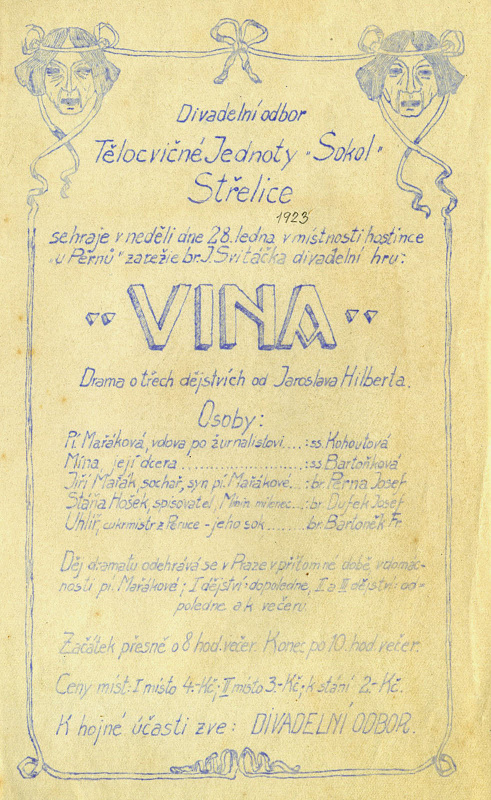 Divadelní odbor
Tělocvičné Jednoty "Sokol"
Střelice
1923
sehraje v neděli dne 28. ledna v místnosti hostince
"u Pernů" za režie br. J. Svitáčka divadelní hru:
"VINA"
Drama o třech dějstvích od Jaroslava Hilberta.
Osoby:
Pí. Mařáková, vdova po žurnalistovi....: ss. Kohoutová
Mína, její dcera ...................: ss. Bartoňková
Jiří Mařák, sochař, syn pí. Mařákové..: br. Perna Josef
Stáňa Hošek, spisovatel, Minin milenec..: br. Dufek Josef
Uhlíř, cukrmistr z Pěnice - jeho sok.......: br. Bartoněk Fr.
Děj dramatu odehrává se v Praze v přítomné době, v domác-
nosti pí. Mařákové; I dějství: dopoledne, II a III dějství: od-
poledne a k večeru.
Začátek přesně o 8 hod. večer. Konec po 10. hod. večer.
Ceny míst: I místo 4.- Kč; II místo 3.- Kč; k stání 2.- Kč.
K hojné účasti zve: DIVADELNÍ ODBOR.